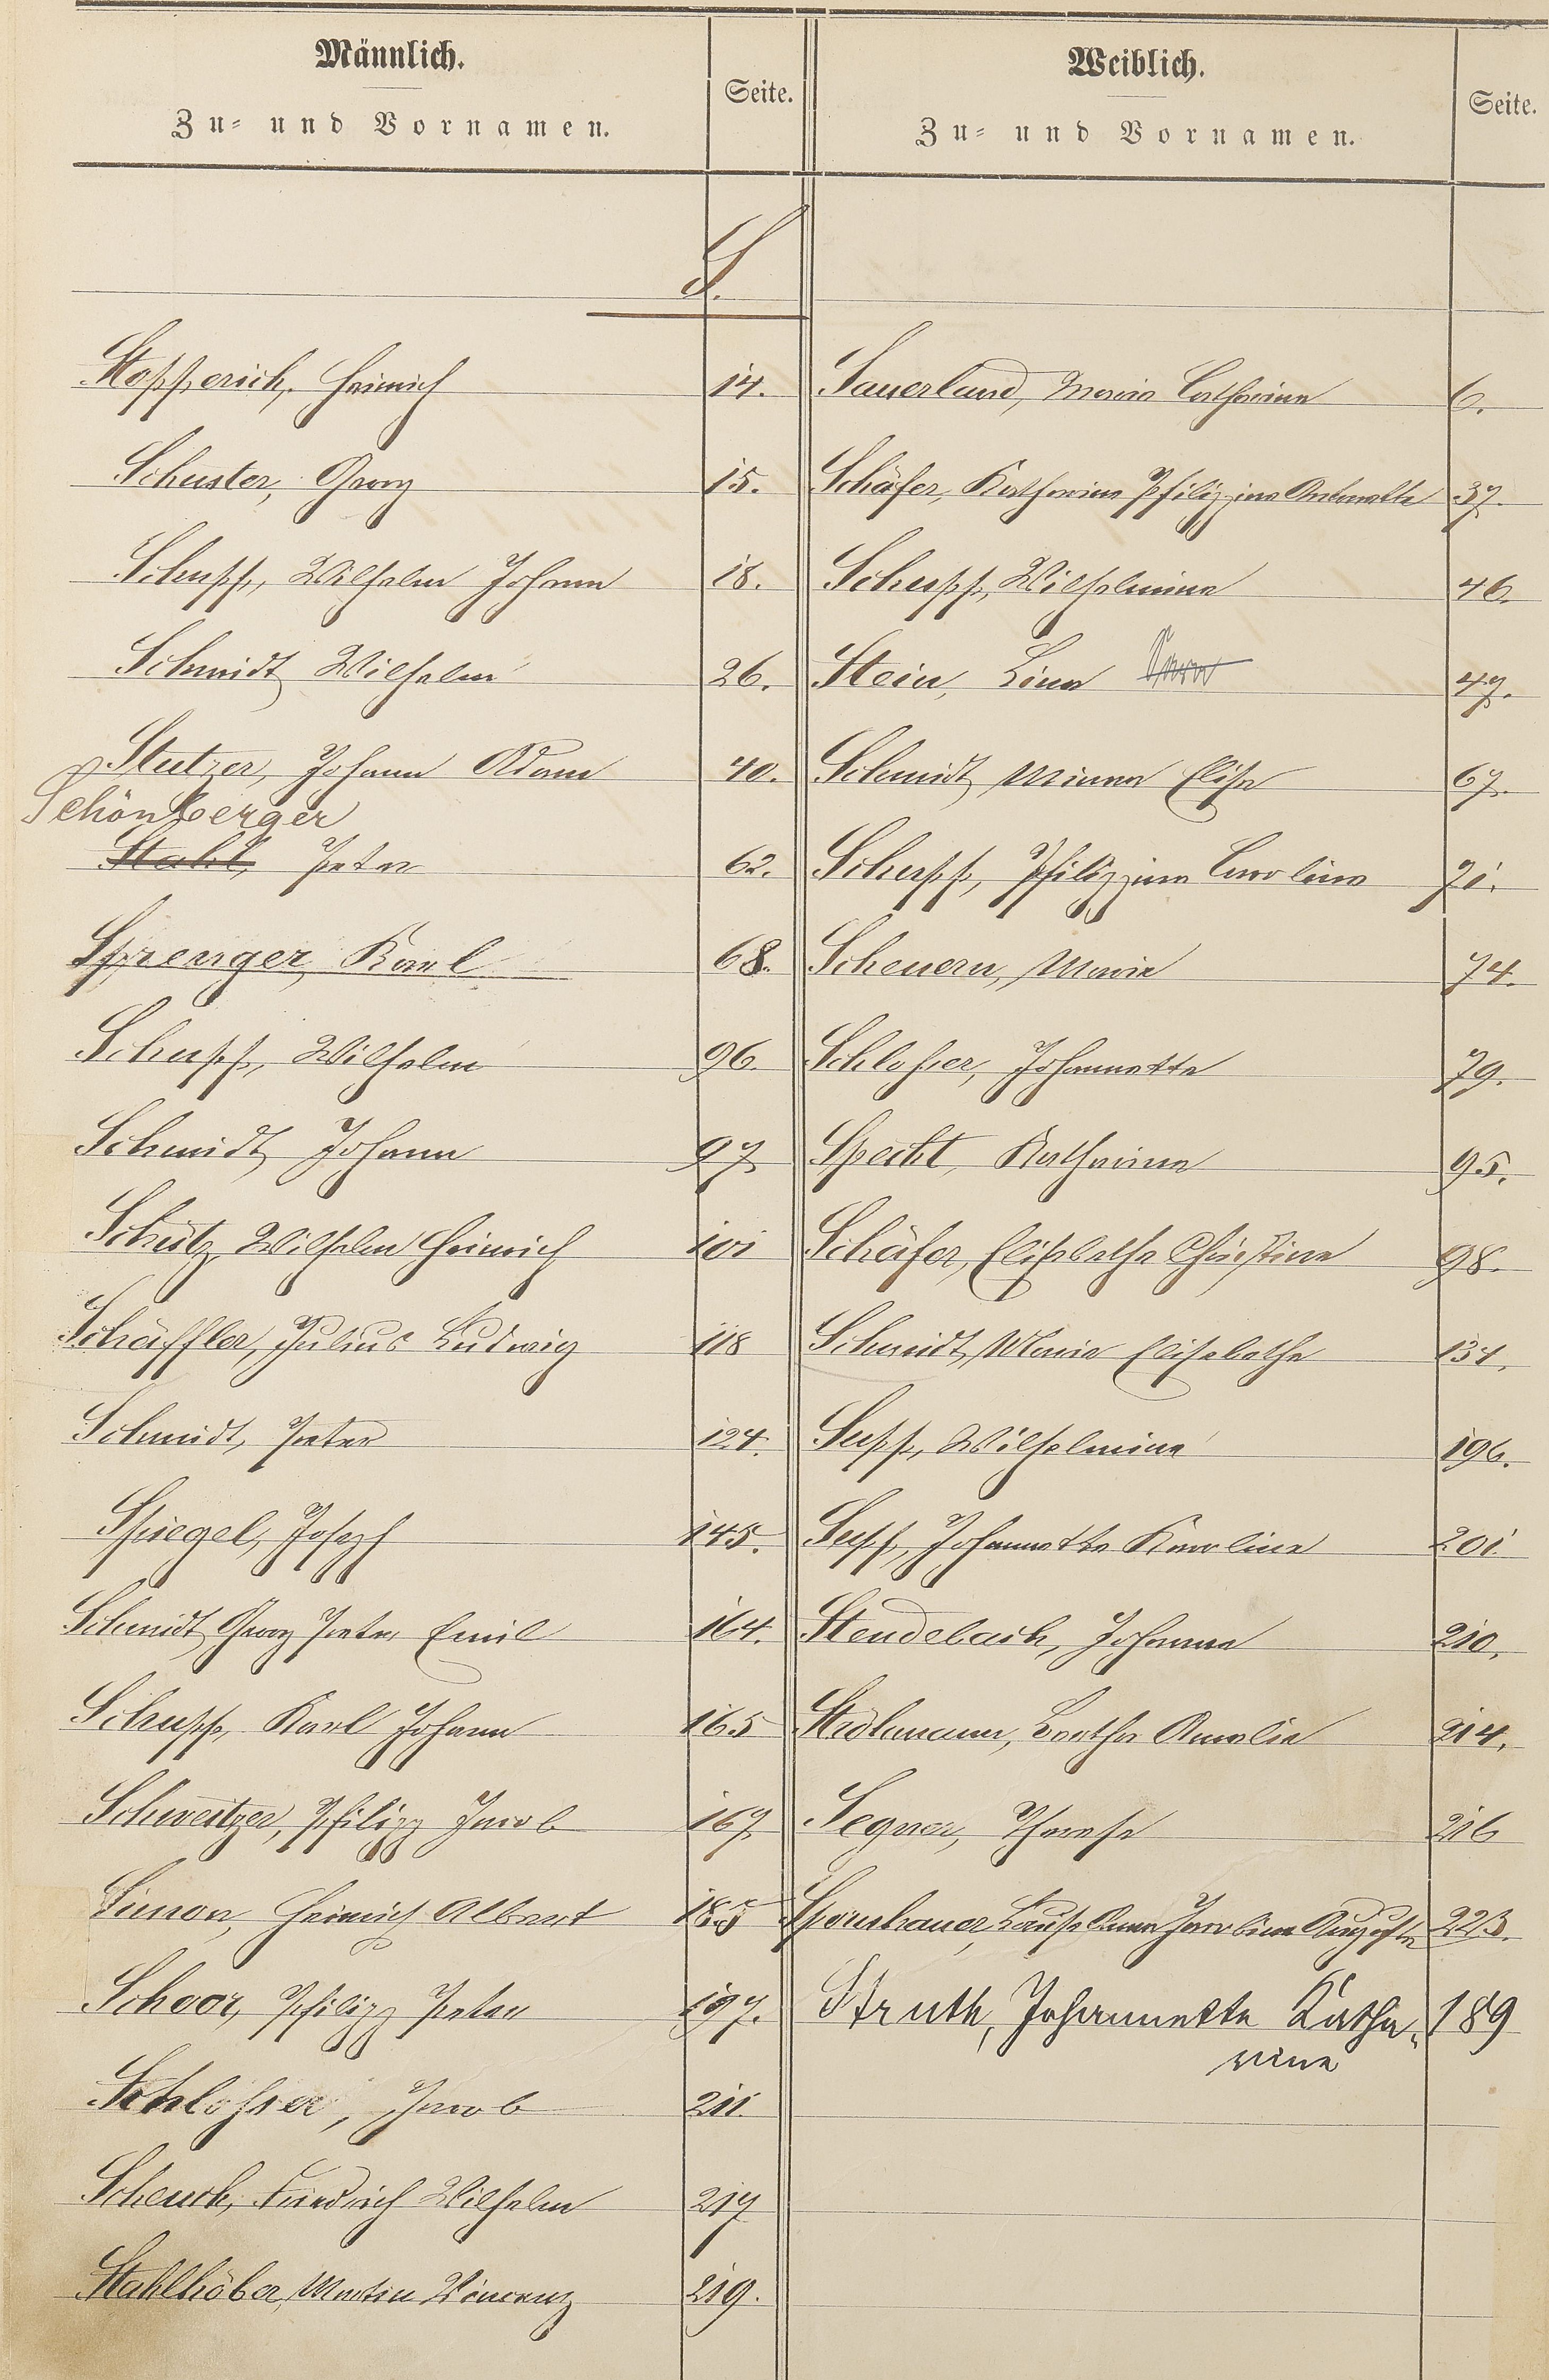 Männlich.
Zu- und Vornamen.
Seite.
Weiblich.
Zu- und Vornamen.
Seite.
S.
Stopperich, Heinrich 14.
Schuster, Georg 15.
Schupp, Wilhelm Johann 18.
Schmidt, Wilhelm 26.
Stutzer, Johann Adam 40.
Schönberger
Stahl, Peter 62.
Sprenger, Karl 68.
Schupp, Wilhelm 96.
Schmidt, Johann 97
Schütz, Wilhelm Heinrich 101
Schäffler, Julius Ludwig 118
Schmidt, Peter 124.
Spiegel, Joseph 145.
Schmidt, Georg Peter Emil 164.
Schupp, Karl Johann 165
Schweitzer, Philipp Jacob 167
Simon, Heinrich Albert 185
Schoor, Philipp Peter 197.
Schloßer, Jacob 211.
Schenck, Friedrich Wilhelm 217
Stahlhöber, Martin Vincenz 219.
Sauerland, Maria Catharina 6.
Schäfer, Katharina Philippina Antonette 37.
Schupp, Wilhelmine 46.
Stein, Lina 47.
Schmidt, Minna Elise 67.
Schupp, Philippine Caroline 71.
Scheuern, Marie 74.
Schloßer, Johannette 79.
Specht, Katharina 95.
Schäfer, Elisabetha Christine 98.
Schmidt, Maria Elisabetha 134.
Supp, Wilhelmine 196.
Supp, Johannette Karoline 201
Stendebach, Johanna 210.
Stedlmann, Bertha Amalie 214.
Segner, Therese 216
Spornhauer, Louise Anna Karoline Auguste 223.
Struth, Johannette Katha- 189
rine